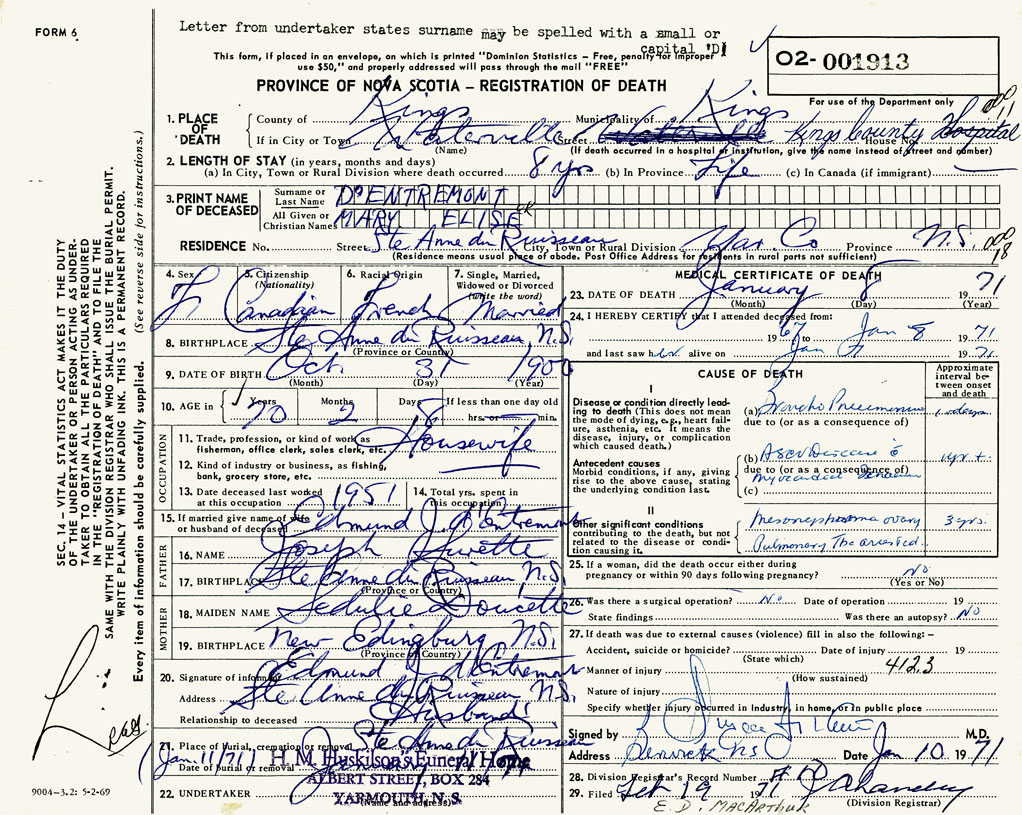 FORM 6
Letter from undertaker states surname may be spelled with a small or
capital 'D'
This form, if placed in an envelope, on which is printed "Dominion Statistics – Free, penalty for improper
use $50," and properly addressed will pass through the mail "FREE"
O2- 001913
PROVINCE OF NOVA SCOTIA – REGISTRATION OF DEATH
For use of the Department only
1. PLACE OF DEATH
County of Kings Municipality of Kings
If in City or Town Waterville Street Kings County Hospital House No.
(Name) (If death occurred in a hospital or institution, give the name instead of street and number)
2. LENGTH OF STAY (in years, months and days)
(a) In City, Town or Rural Division where death occurred 8 yrs (b) In Province Life (c) In Canada (if immigrant)
3. PRINT NAME OF DECEASED
Surname or Last Name D'ENTREMONT
All Given or Christian Names MARY ELISE
RESIDENCE No. Street Ste Anne du Ruisseau City, Town or Rural Division Yar. Co Province N.S.
(Residence means usual place of abode. Post Office Address for residents in rural parts not sufficient)
4. Sex F
5. Citizenship (Nationality) Canadian
6. Racial Origin French
7. Single, Married, Widowed or Divorced (write the word) Married
8. BIRTHPLACE Ste Anne du Ruisseau N.S.
(Province or Country)
9. DATE OF BIRTH Oct. 31 1900
(Month) (Day) (Year)
10. AGE in Years 70 Months 2 Days 8 If less than one day old hrs. or min.
OCCUPATION
11. Trade, profession, or kind of work as fisherman, office clerk, sales clerk, etc. Housewife
12. Kind of industry or business, as fishing, bank, grocery store, etc.
13. Date deceased last worked at this occupation 1951
14. Total yrs. spent in this occupation
15. If married give name of wife or husband of deceased Edmund J. d'Entremont
FATHER
16. NAME Joseph
17. BIRTHPLACE Ste Anne du Ruisseau, N.S.
(Province or Country)
MOTHER
18. MAIDEN NAME Sedulie Doucette
19. BIRTHPLACE New Edingburg, N.S.
(Province or Country)
20. Signature of informant Edmund J d'Entremont
Address Ste Anne du Ruisseau N.S.
Relationship to deceased Husband
21. Place of Burial, cremation or removal Ste Anne du Ruisseau
Date of burial or removal Jan. 11/71
22. UNDERTAKER H. M. Huskilson's Funeral Home
ALBERT STREET, BOX 284
YARMOUTH, N. S.
(Name and address)
MEDICAL CERTIFICATE OF DEATH
23. DATE OF DEATH January 8 1971
(Month) (Day) (Year)
24. I HEREBY CERTIFY that I attended deceased from:
1967 to Jan 8 1971
and last saw her alive on Jan 1971
CAUSE OF DEATH
Approximate interval between onset and death
I
Disease or condition directly leading to death (This does not mean the mode of dying, e.g., heart failure, asthenia, etc. It means the disease, injury, or complication which caused death.)
(a) Broncho Pneumonia days
due to (or as a consequence of)
Antecedent causes
Morbid conditions, if any, giving rise to the above cause, stating the underlying condition last.
(b) yrs +
due to (or as a consequence of)
myocardial
(c)
II
Other significant conditions contributing to the death, but not related to the disease or condition causing it.
Mesonephroma ovary 3 yrs.
Pulmonary Tbc arrested
25. If a woman, did the death occur either during pregnancy or within 90 days following pregnancy? NO
(Yes or No)
26. Was there a surgical operation? NO Date of operation 19
State findings Was there an autopsy? NO
27. If death was due to external causes (violence) fill in also the following: –
Accident, suicide or homicide? Date of injury 19
(State which)
Manner of injury 4123
(How sustained)
Nature of injury
Specify whether injury occurred in industry, in home, or in public place
Signed by M.D.
Address Berwick NS Date Jan 10 1971
28. Division Registrar's Record Number
29. Filed Feb 19 1971
(Division Registrar)
E. D. MACARTHUR
SEC. 14 – VITAL STATISTICS ACT MAKES IT THE DUTY
OF THE UNDERTAKER OR PERSON ACTING AS UNDER-
TAKER TO OBTAIN ALL THE PARTICULARS REQUIRED
IN THE "REGISTRATION OF DEATH" AND TO FILE THE
SAME WITH THE DIVISION REGISTRAR WHO SHALL ISSUE THE BURIAL PERMIT.
WRITE PLAINLY WITH UNFADING INK. THIS IS A PERMANENT RECORD.
Every item of information should be carefully supplied. (See reverse side for instructions.)
9004–3.2: 5-2-69